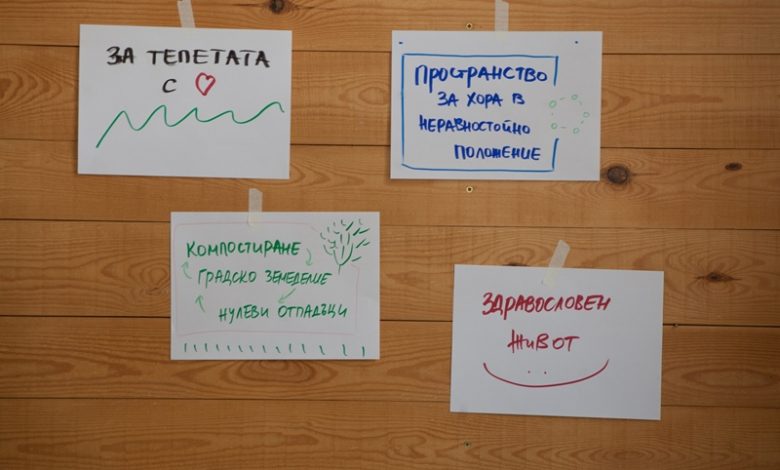 ЗА ТЕПЕТАТА
С
ПРОСТРАНСТВО
ЗА ХОРА В
НЕРАВНОСТОЙНО
ПОЛОЖЕНИЕ
КОМПОСТИРАНЕ
ГРАДСКО ЗЕМЕДЕЛИЕ
НУЛЕВИ ОТПАДЪЦИ
ЗДРАВОСЛОВЕН
ЖИВОТ